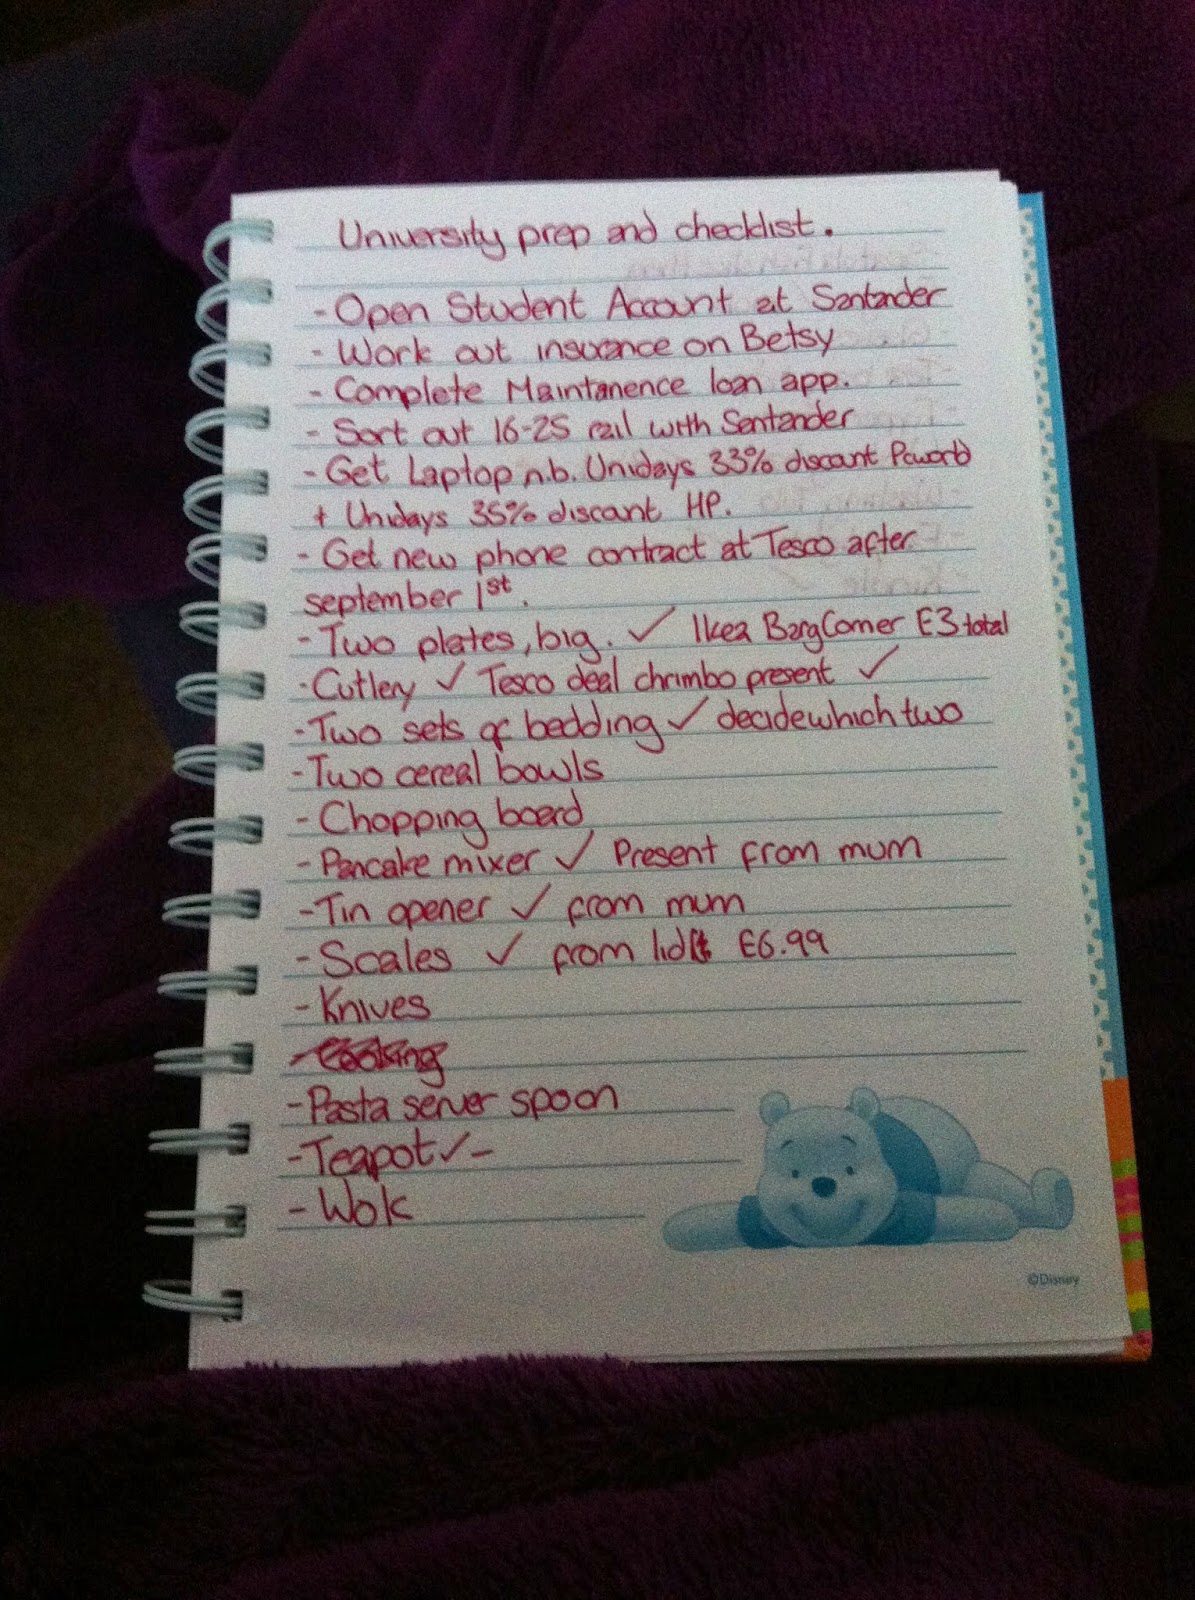 University prep and checklist.
- Open Student Account at Santander
- Work out insurance on Betsy
- Complete Maintanence loan app.
- Sort out 16-25 rail with Santander
- Get Laptop n.b. Unidays 33% discount
+ Unidays 35% discount HP.
- Get new phone contract at Tesco after
september 1st.
- Two plates, big. ✓ Ikea BargCorner £3 total
- Cutlery ✓ Tesco deal chrimbo present ✓
- Two sets of bedding ✓ decide which two
- Two cereal bowls
- Chopping board
- Pancake mixer ✓ Present from mum
- Tin opener ✓ from mum
- Scales ✓ from lidl £6.99
- Knives
- Cooking
- Pasta server spoon
- Teapot ✓ -
- Wok
©Disney